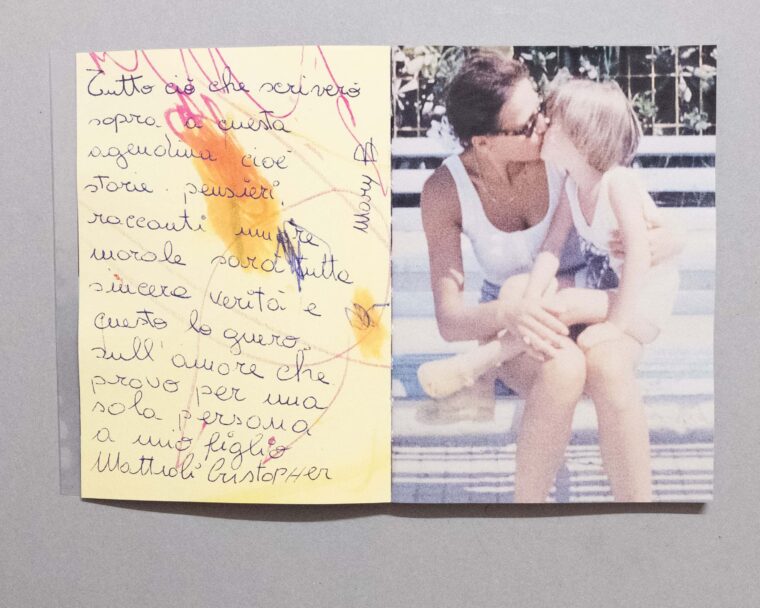 Tutto ciò che scriverò
sopra a questa
agendina cioé
storie pensieri,
racconti umore
morale sará tutta
sincera verità e
questo lo giuro
sull'amore che
provo per una
sola persona
a mio figlio
Mattioli CristopHer
Mary B